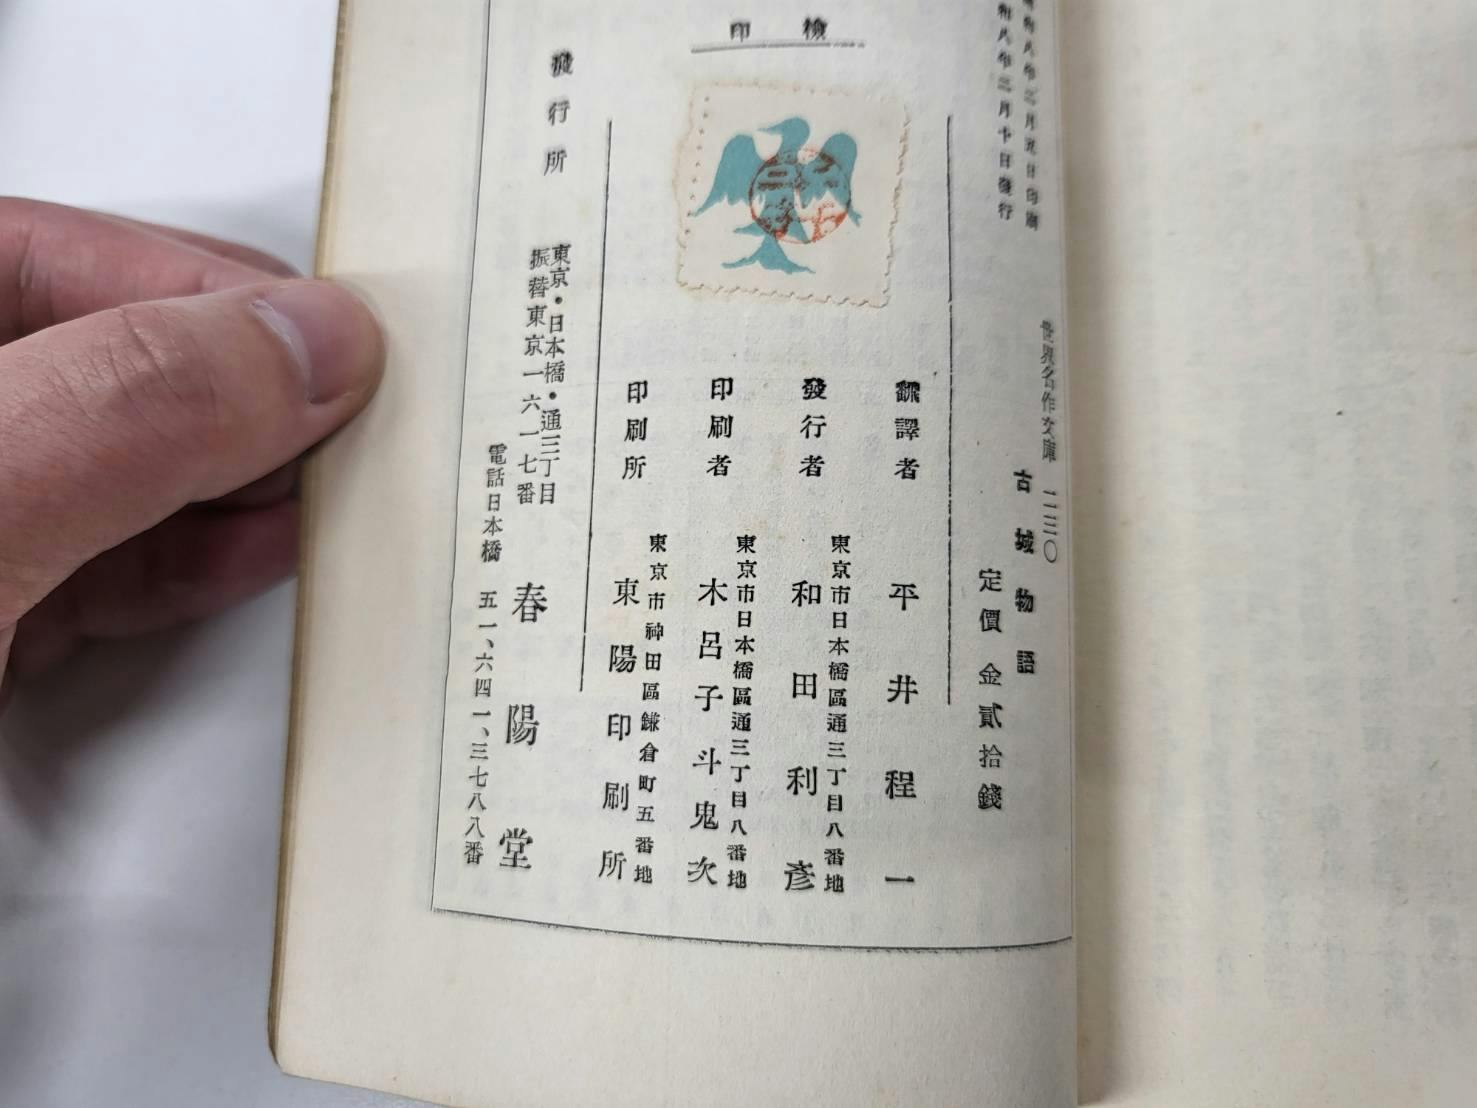 昭和八年三月五日印刷
昭和八年三月十日發行
世界名作文庫 二三〇
古城物語
定價 金貳拾錢
檢印
飜譯者 平井程一
發行者 東京市日本橋區通三丁目八番地
和田利彥
印刷者 東京市日本橋區通三丁目八番地
木呂子斗鬼次
印刷所 東京市神田區鎌倉町五番地
東陽印刷所
發行所 東京・日本橋・通三丁目
振替東京一六一七番
春陽堂
電話日本橋 五一、六四一、三七八八番